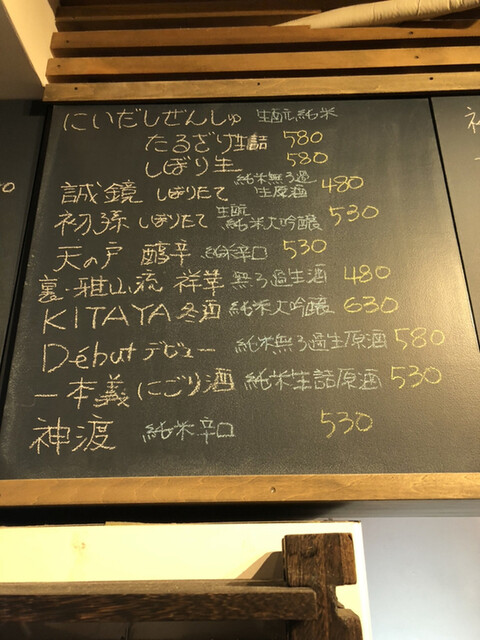 にいだしぜんしゅ 生酛純米
たるざけ生詰 580
しぼり生 580
誠鏡 しぼりたて 純米無ろ過生原酒 480
初孫 しぼりたて 生酛純米大吟醸 530
天の戸 醇辛 純米辛口 530
裏・雅山流 祥華 無ろ過生酒 480
KITAYA 冬酒 純米大吟醸 630
Début デビュー 純米無ろ過生原酒 580
一本義 にごり酒 純米生詰原酒 530
神渡 純米辛口 530